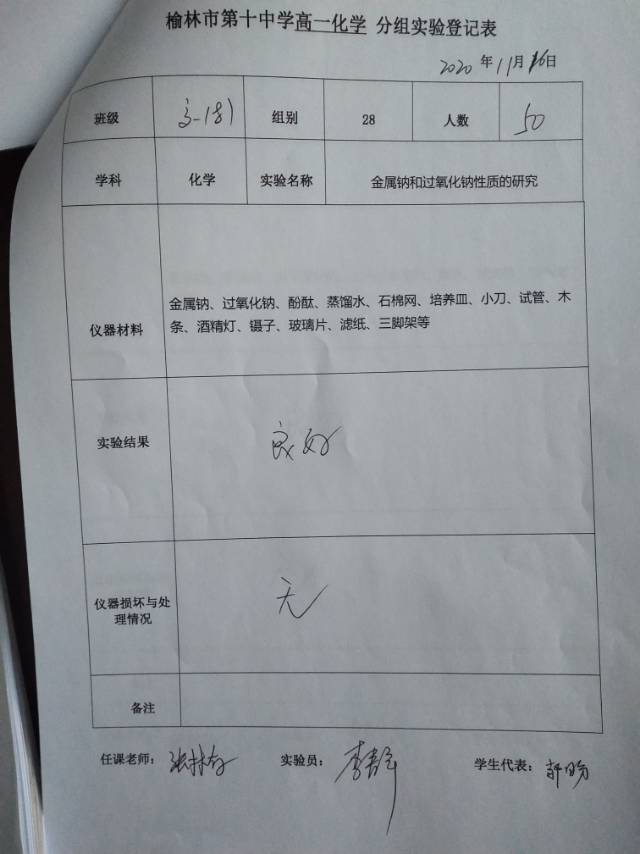 榆林市第十中学高一化学 分组实验登记表
2020 年 11月 16日
班级 高一(8) 组别 28 人数 50
学科 化学 实验名称 金属钠和过氧化钠性质的研究
仪器材料
金属钠、过氧化钠、酚酞、蒸馏水、石棉网、培养皿、小刀、试管、木
条、酒精灯、镊子、玻璃片、滤纸、三脚架等
实验结果 良好
仪器损坏与处
理情况
无
备注
任课老师： 实验员： 学生代表：